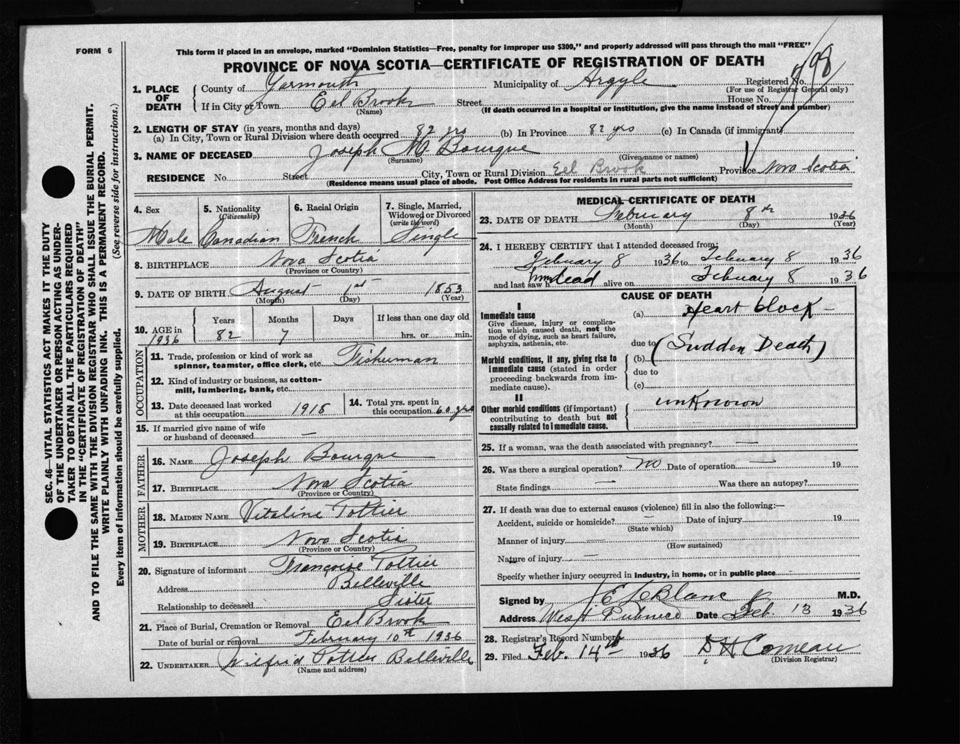 FORM 6
This form if placed in an envelope, marked "Dominion Statistics—Free, penalty for improper use $300," and properly addressed will pass through the mail "FREE"
PROVINCE OF NOVA SCOTIA—CERTIFICATE OF REGISTRATION OF DEATH
1. PLACE OF DEATH
County of Yarmouth Municipality of Argyle Registered No.
(For use of Registrar General only)
If in City or Town Eel Brook Street House No.
(Name) (If death occurred in a hospital or institution, give the name instead of street and number)
2. LENGTH OF STAY (in years, months and days)
(a) In City, Town or Rural Division where death occurred 82 yrs (b) In Province 82 yrs (c) In Canada (if immigrant)
3. NAME OF DECEASED Joseph M. Bourque
(Surname) (Given name or names)
RESIDENCE No. Street City, Town or Rural Division Eel Brook Province Nova Scotia
(Residence means usual place of abode. Post Office Address for residents in rural parts not sufficient)
4. Sex Male
5. Nationality (Citizenship) Canadian
6. Racial Origin French
7. Single, Married, Widowed or Divorced (write the word) Single
8. BIRTHPLACE Nova Scotia
(Province or Country)
9. DATE OF BIRTH August 1st 1853
(Month) (Day) (Year)
10. AGE in 1936 Years 82 Months 7 Days If less than one day old hrs. or min.
OCCUPATION
11. Trade, profession or kind of work as spinner, teamster, office clerk, etc. Fisherman
12. Kind of industry or business, as cotton-mill, lumbering, bank, etc.
13. Date deceased last worked at this occupation 1918
14. Total yrs. spent in this occupation 60 yrs
15. If married give name of wife or husband of deceased —
FATHER
16. NAME Joseph Bourque
17. BIRTHPLACE Nova Scotia
(Province or Country)
MOTHER
18. MAIDEN NAME Vitaline Pottier
19. BIRTHPLACE Nova Scotia
(Province or Country)
20. Signature of informant Françoise Pottier
Address Belleville
Relationship to deceased Sister
21. Place of Burial, Cremation or Removal Eel Brook
Date of burial or removal February 10th 1936
22. UNDERTAKER Wilfrid Pottier Belleville
(Name and address)
MEDICAL CERTIFICATE OF DEATH
23. DATE OF DEATH February 8th 1936
(Month) (Day) (Year)
24. I HEREBY CERTIFY that I attended deceased from:
February 8 1936 to February 8 1936
and last saw him dead alive on February 8 1936
CAUSE OF DEATH
I
Immediate cause
Give disease, injury or complication which caused death, not the mode of dying, such as heart failure, asphyxia, asthenia, etc.
(a) Heart block —
due to
Morbid conditions, if any, giving rise to immediate cause (stated in order proceeding backwards from immediate cause).
(b) (Sudden Death)
due to
(c)
II
Other morbid conditions (if important) contributing to death but not causally related to immediate cause.
unknown
25. If a woman, was the death associated with pregnancy? —
26. Was there a surgical operation? no Date of operation — 19
State findings — Was there an autopsy?
27. If death was due to external causes (violence) fill in also the following:—
Accident, suicide or homicide? — Date of injury 19
(State which)
Manner of injury —
(How sustained)
Nature of injury —
Specify whether injury occurred in industry, in home, or in public place
Signed by J E LeBlanc M.D.
Address West Pubnico Date Feb. 13 1936
28. Registrar's Record Number
29. Filed Feb. 14th 1936 D. H Comeau
(Division Registrar)
SEC. 46—VITAL STATISTICS ACT MAKES IT THE DUTY
OF THE UNDERTAKER OR PERSON ACTING AS UNDER-
TAKER TO OBTAIN ALL THE PARTICULARS REQUIRED
IN THE "CERTIFICATE OF REGISTRATION OF DEATH"
AND TO FILE THE SAME WITH THE DIVISION REGISTRAR WHO SHALL ISSUE THE BURIAL PERMIT.
WRITE PLAINLY WITH UNFADING INK. THIS IS A PERMANENT RECORD.
Every item of information should be carefully supplied. (See reverse side for instructions.)